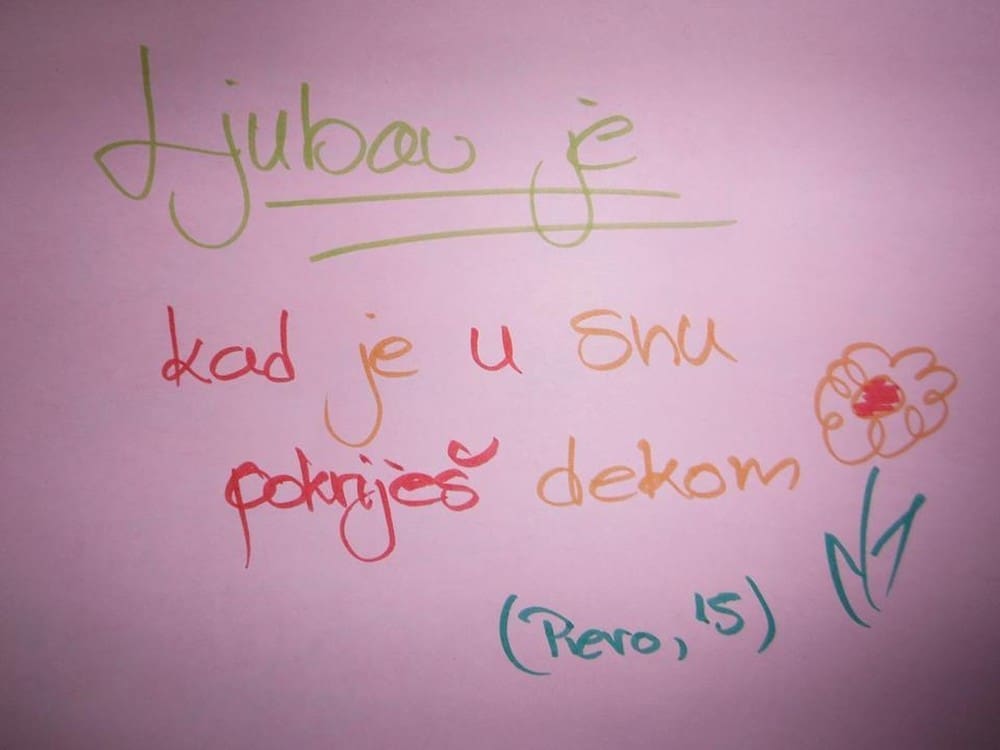 Ljubav je
kad je u snu
pokriješ dekom
(Piero, '15)